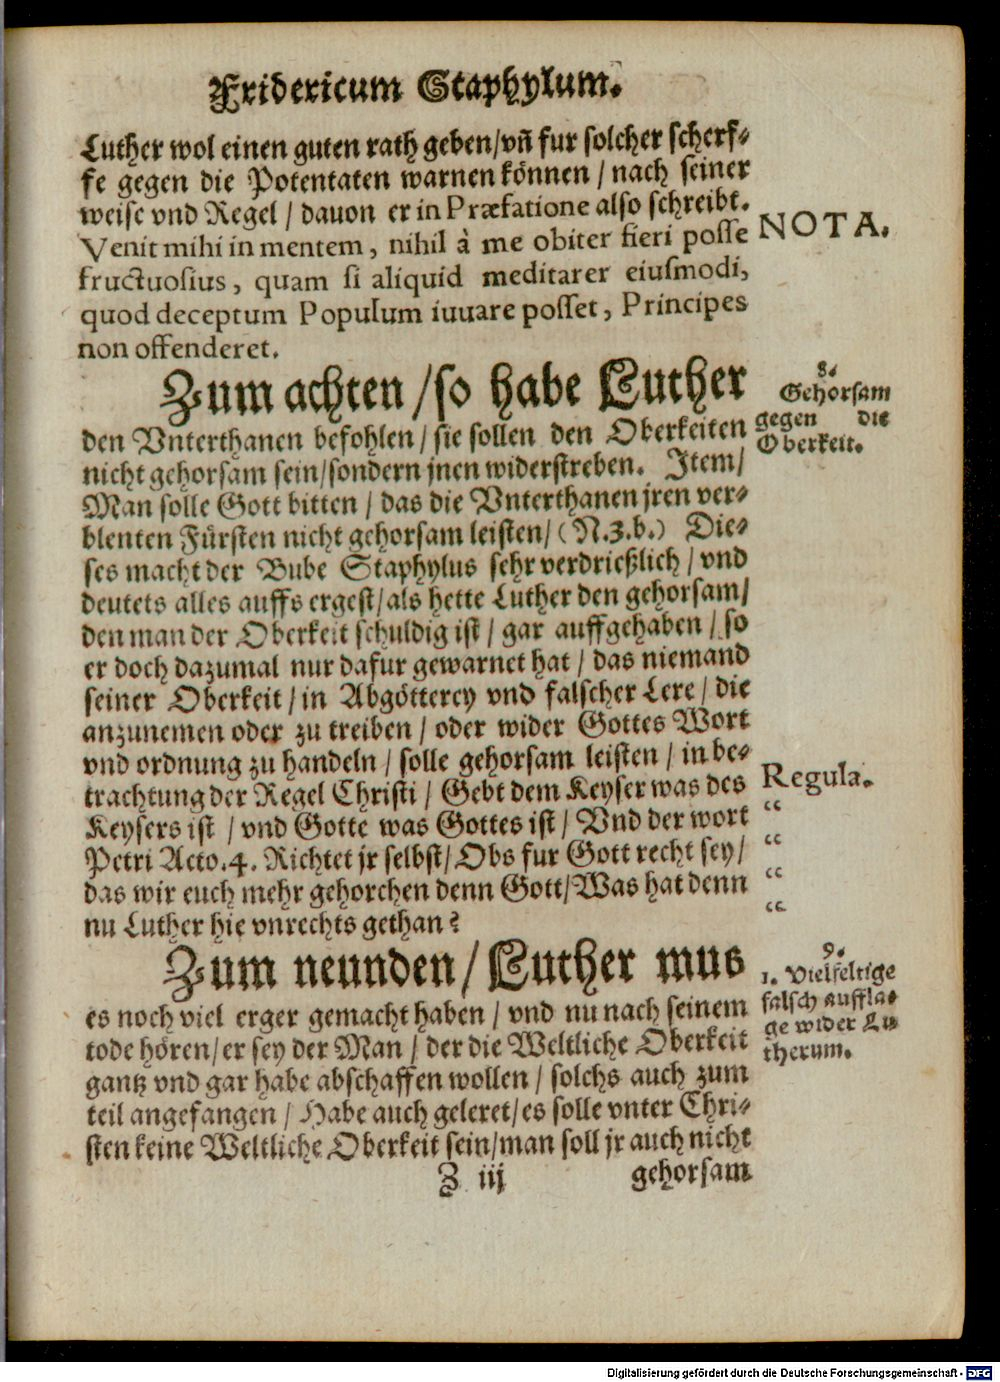 Fridericum Staphylum.
Luther wol einen guten rath geben/vñ fur solcher scherf-
fe gegen die Potentaten warnen können / nach seiner
weise vnd Regel / dauon er in Præfatione also schreibt.
Venit mihi in mentem, nihil à me obiter fieri posse
fructuosius, quam si aliquid meditarer eiusmodi,
quod deceptum Populum iuuare posset, Principes
non offenderet.
NOTA.
Zum achten /so habe Luther
den Vnterthanen befohlen/ sie sollen den Oberkeiten
nicht gehorsam sein/sondern jnen widerstreben. Item/
Man solle Gott bitten / das die Vnterthanen jren ver-
blenten Fürsten nicht gehorsam leisten/ (N.3.b.) Die-
ses macht der Bube Staphylus sehr verdrießlich / vnd
deutets alles auffs ergest/als hette Luther den gehorsam/
den man der Oberkeit schuldig ist / gar auffgehaben / so
er doch dazumal nur dafur gewarnet hat / das niemand
seiner Oberkeit / in Abgötterey vnd falscher Lere / die
anzunemen oder zu treiben / oder wider Gottes Wort
vnd ordnung zu handeln / solle gehorsam leisten / in be-
trachtung der Regel Christi / Gebt dem Keyser was des
Keysers ist / vnd Gotte was Gottes ist / Vnd der wort
Petri Acto.4. Richtet jr selbst/ Obs fur Gott recht sey/
das wir euch mehr gehorchen denn Gott/ Was hat denn
nu Luther hie vnrechts gethan?
8.
Gehorsam
gegen die
Oberkeit.
Regula.
“
“
“
“
Zum neunden/ Luther mus
es noch viel erger gemacht haben / vnd nu nach seinem
tode hören/ er sey der Man / der die Weltliche Oberkeit
gantz vnd gar habe abschaffen wollen / solchs auch zum
teil angefangen / Habe auch geleret/ es solle vnter Chri-
sten keine Weltliche Oberkeit sein/man soll jr auch nicht
9.
1. Vielfeltige
falsch auffla-
ge wider Lu-
therum.
Z iij
gehorsam
Digitalisierung gefördert durch die Deutsche Forschungsgemeinschaft - DFG